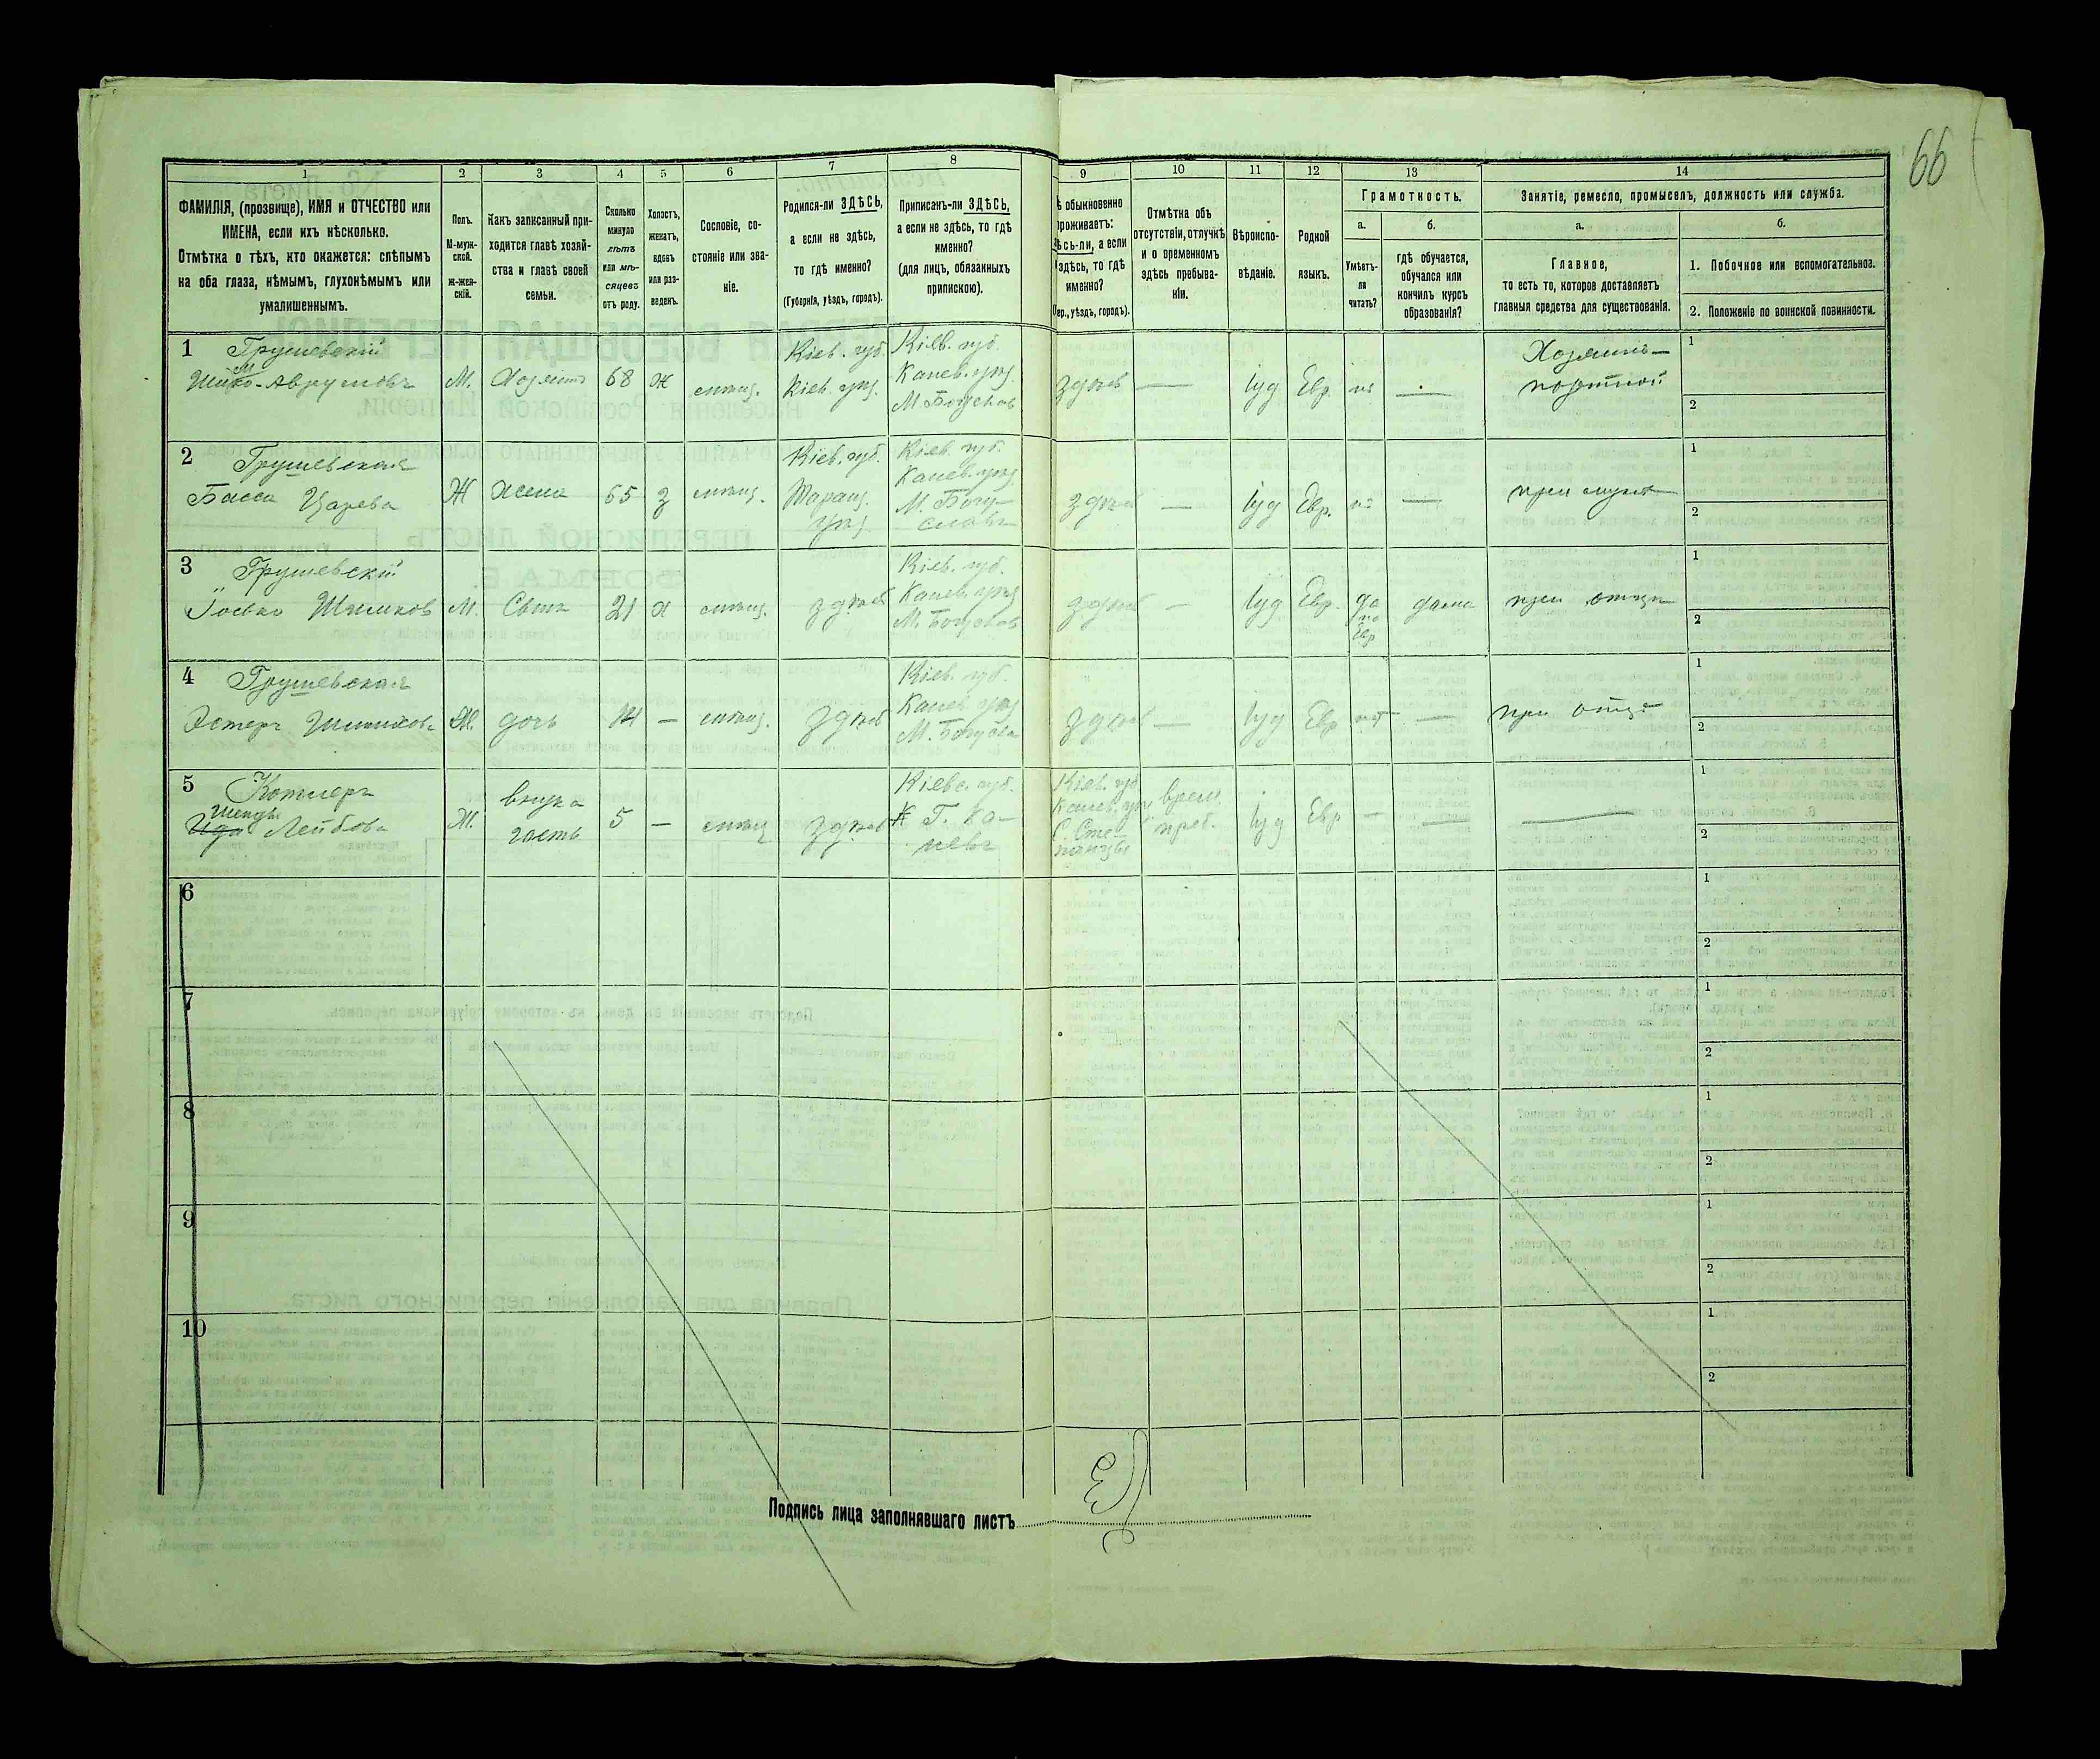 66
1
2
3
4
5
6
7
8
9
10
11
12
13
14
ФАМИЛІЯ, (прозвище), ИМЯ и ОТЧЕСТВО или
ИМЕНА, если ихъ нѣсколько.
Отмѣтка о тѣхъ, кто окажется: слѣпымъ
на оба глаза, нѣмымъ, глухонѣмымъ или
умалишеннымъ.
Полъ.
М-муж-
ской.
Ж-жен-
скій.
Какъ записанный при-
ходится главѣ хозяй-
ства и главѣ своей
семьи.
Сколько
минуло
лѣтъ
или мѣ-
сяцевъ
отъ роду.
Холостъ,
женатъ,
вдовъ
или раз-
веденъ.
Сословіе, со-
стояніе или зва-
ніе.
Родился-ли ЗДѢСЬ,
а если не здѣсь,
то гдѣ именно?
(Губернія, уѣздъ, городъ).
Приписанъ-ли ЗДѢСЬ,
а если не здѣсь, то гдѣ
именно?
(для лицъ, обязанныхъ
припискою).
ѣ обыкновенно
проживаетъ:
ѣсь-ли, а если
здѣсь, то гдѣ
именно?
ер., уѣздъ, городъ).
Отмѣтка объ
отсутствіи, отлучкѣ
и о временномъ
здѣсь пребыва-
ніи.
Вѣроиспо-
вѣданіе.
Родной
языкъ.
Грамотность.
а.
Умѣетъ-
ли
читать?
б.
гдѣ обучается,
обучался или
кончилъ курсъ
образованія?
Занятіе, ремесло, промыселъ, должность или служба.
а.
Главное,
то есть то, которое доставляетъ
главныя средства для существованія.
б.
1. Побочное или вспомогательное.
2. Положеніе по воинской повинности.
1 Грушевскій
М. Хозяинъ 68 Ж мѣщ. Кіев. губ. Кіев. уѣз. Кіев. губ. Канев. уѣз. М. Богуслав
здѣсь — Іуд Евр. — Хозяинъ — портной
1
2
2 Грушевская
Басса
Ж Жена 65 З мѣщ. Кіев. губ. Таращ. уѣз. Кіев. губ. Канев. уѣз. М. Богу-
славъ
здѣсь — Іуд Евр. — при мужѣ
1
2
3 Грушевскій
М. Сынъ 21 Х мѣщ. здѣсь Кіев. губ. Канев. уѣз. М. Богуслав
здѣсь — Іуд Евр. да по Евр дома при отцѣ
1
2
4 Грушевская
Эстеръ
Ж. дочь 14 — мѣщ. здѣсь Кіев. губ. Канев. уѣз. М. Богусла
здѣсь — Іуд Евр нѣт — при отцѣ
1
2
5 Котляръ
Лейбова
Ж. внука гость 5 — мѣщ здѣсь Кіевс. губ. Г. Ка-
невъ
Кіев. губ. Канев. уѣз С. Сте-
панцы врем. преб. Іуд Евр — — —
1
2
6
1
2
7
1
2
8
1
2
9
1
2
10
1
2
Подпись лица заполнявшаго листъ